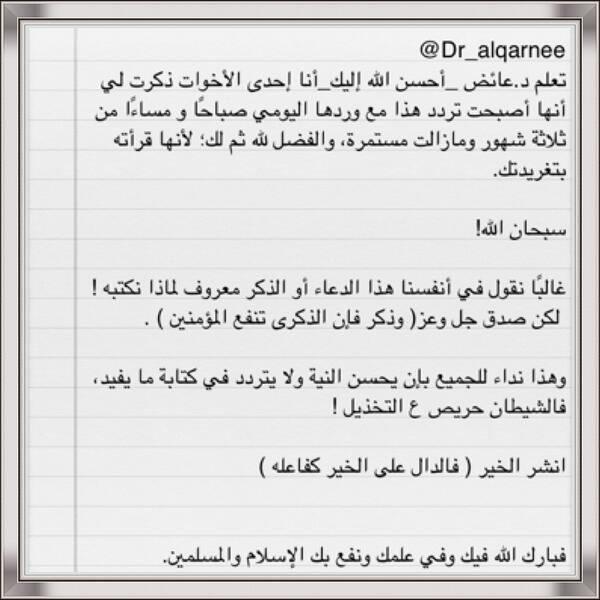 @Dr_alqarnee
تعلم د.عائض _أحسن الله إليك_أنا إحدى الأخوات ذكرت لي
أنها أصبحت تردد هذا مع وردها اليومي صباحًا و مساءًا من
ثلاثة شهور ومازالت مستمرة، والفضل لله ثم لك؛ لأنها قرأته
بتغريدتك.
سبحان الله!
غالبًا نقول في أنفسنا هذا الدعاء أو الذكر معروف لماذا نكتبه !
لكن صدق جل وعز( وذكر فإن الذكرى تنفع المؤمنين ) .
وهذا نداء للجميع بإن يحسن النية ولا يتردد في كتابة ما يفيد،
فالشيطان حريص ع التخذيل !
انشر الخير ( فالدال على الخير كفاعله )
فبارك الله فيك وفي علمك ونفع بك الإسلام والمسلمين.